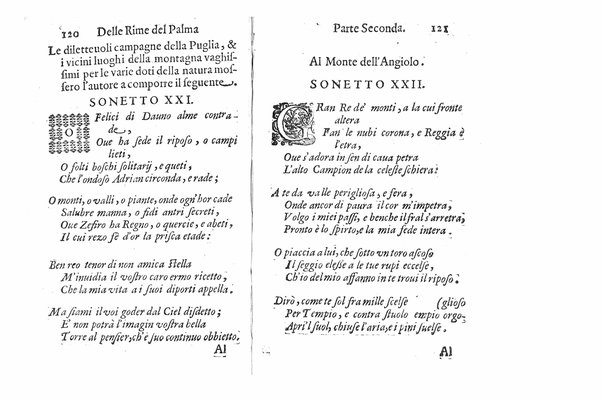 120 Delle Rime del Palma
Le diletteuoli campagne della Puglia, &
i vicini luoghi della montagna vaghis-
simi per le varie doti della natura mos-
sero l'autore a comporre il seguente.
SONETTO XXI.
O Felici di Dauno alme contra-
de,
Oue ha sede il riposo, o campi
lieti,
O folti boschi solitarij, e queti,
Che l'ondoso Adrian circonda, e rade;
O monti, o valli, o piante, onde ogn'hor cade
Salubre manna, o fidi antri secreti,
Oue Zefiro ha Regno, o quercie, e abeti,
Il cui rezo fè d'or la prisca etade:
Ben reo tenor di non amica stella
M'inuidia il vostro caro ermo ricetto,
Che la mia vita a i suoi diporti appella.
Ma siami il voi goder dal Ciel disdetto;
E' non potrà l'imagin vostra bella
Torre al pensier, ch'è suo continuo obbietto.
Al
Parte Seconda. 121
Al Monte dell'Angiolo.
SONETTO XXII.
GRan Re de' monti, a la cui fronte
altera
Fan le nubi corona, e Reggia è
l'etra,
Oue s'adora in sen di caua petra
L'alto Campion de la celeste schiera:
A te da valle perigliosa, e fera,
Onde ancor di paura il cor m'impetra,
Volgo i miei passi, e benche il fral s'arretra,
Pronto è lo spirto, e la mia fede intera.
O piaccia a lui, che sotto vn toro ascoso
Il seggio elesse a le tue rupi eccelse,
Ch'io del mio affanno in te troui il riposo.
Dirò, come te sol fra mille scelse (glioso
Per Tempio, e contra stuolo empio orgo-
Aprì'l suol, chiuse l'aria, e i pini suelse.
Al